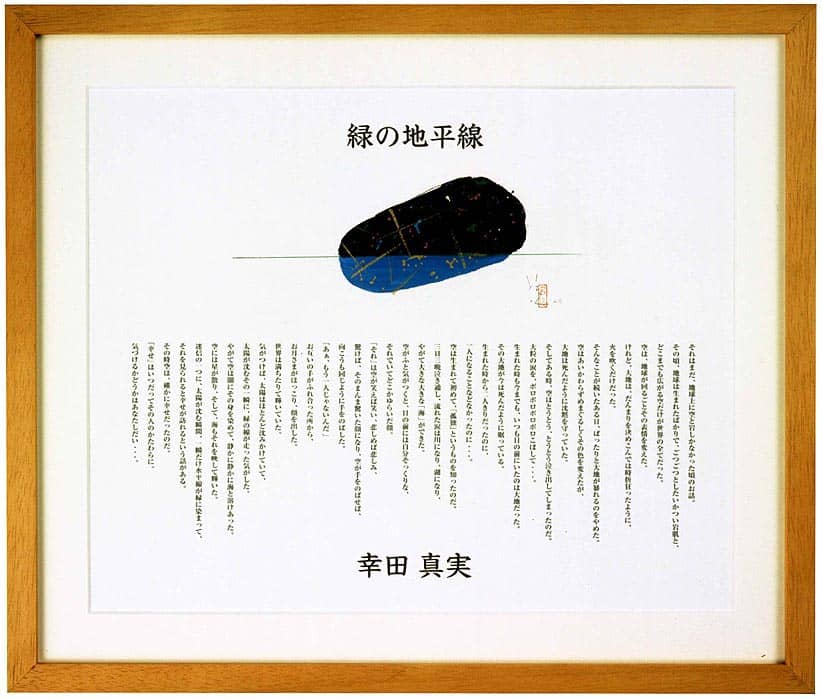 緑の地平線
それはまだ、地球上に空と岩しかなかった頃のお話。
その頃、地球は生まれたばかりで、ごつごつとしたいかつい岩肌と、
どこまでも広がる空だけが世界の全てだった。
空は、地球が回るごとその表情を変えた。
けれど、大地は、だんまりを決めこんでは時折狂ったように、
火を吹くだけだった。
そんなことが続いたある日、ぱったりと大地が暴れるのをやめた。
空はあいかわらずめまぐるしくその色を変えたが、
大地は死んだように沈黙を守っていた。
そしてある時、空はとうとう、とうとう泣き出してしまったのだ。
大粒の涙を、ポロポロポロポロこぼして・・・。
生まれた時も今までも、いつも目の前にいたのは大地だった。
その大地が今は死んだように眠っている。
生まれた時から、一人きりだったのに、
一人になることなどなかったのに・・・。
空は生まれて初めて、「孤独」というものを知ったのだ。
三日三晩泣き通し、流れた涙は川になり、湖になり、
やがて大きな大きな「海」ができた。
空がふと気がつくと、目の前には自分そっくりな、
それでいてどこかゆらいだ顔。
「それ」は空が笑えば笑い、悲しめば悲しみ、
驚けば、そのまんま驚いた顔になり、空が手をのばせば、
向こうも同じように手をのばした。
「あぁ、もう一人じゃないんだ」
お互いの手がふれ合った所から、
お月さまがほっこり、顔を出した。
世界は満ちたりて輝いていた。
気がつけば、太陽はほとんど沈みかけていて、
太陽が沈むその一瞬に、緑の線が走った気がした。
やがて空は闇にその身を染めて、静かに静かに海と溶けあった。
空には星が散り、そして、海もそれを映して輝いた。
迷信の一つに、太陽が沈む瞬間、一瞬だけ水平線が緑に染まって、
それを見られると幸せが訪れるという話がある。
その時空は、確かに幸せだったのだ。
「幸せ」はいつだってその人のかたわらに、
気づけるかどうかはあなたしだい・・・。
幸田 真実